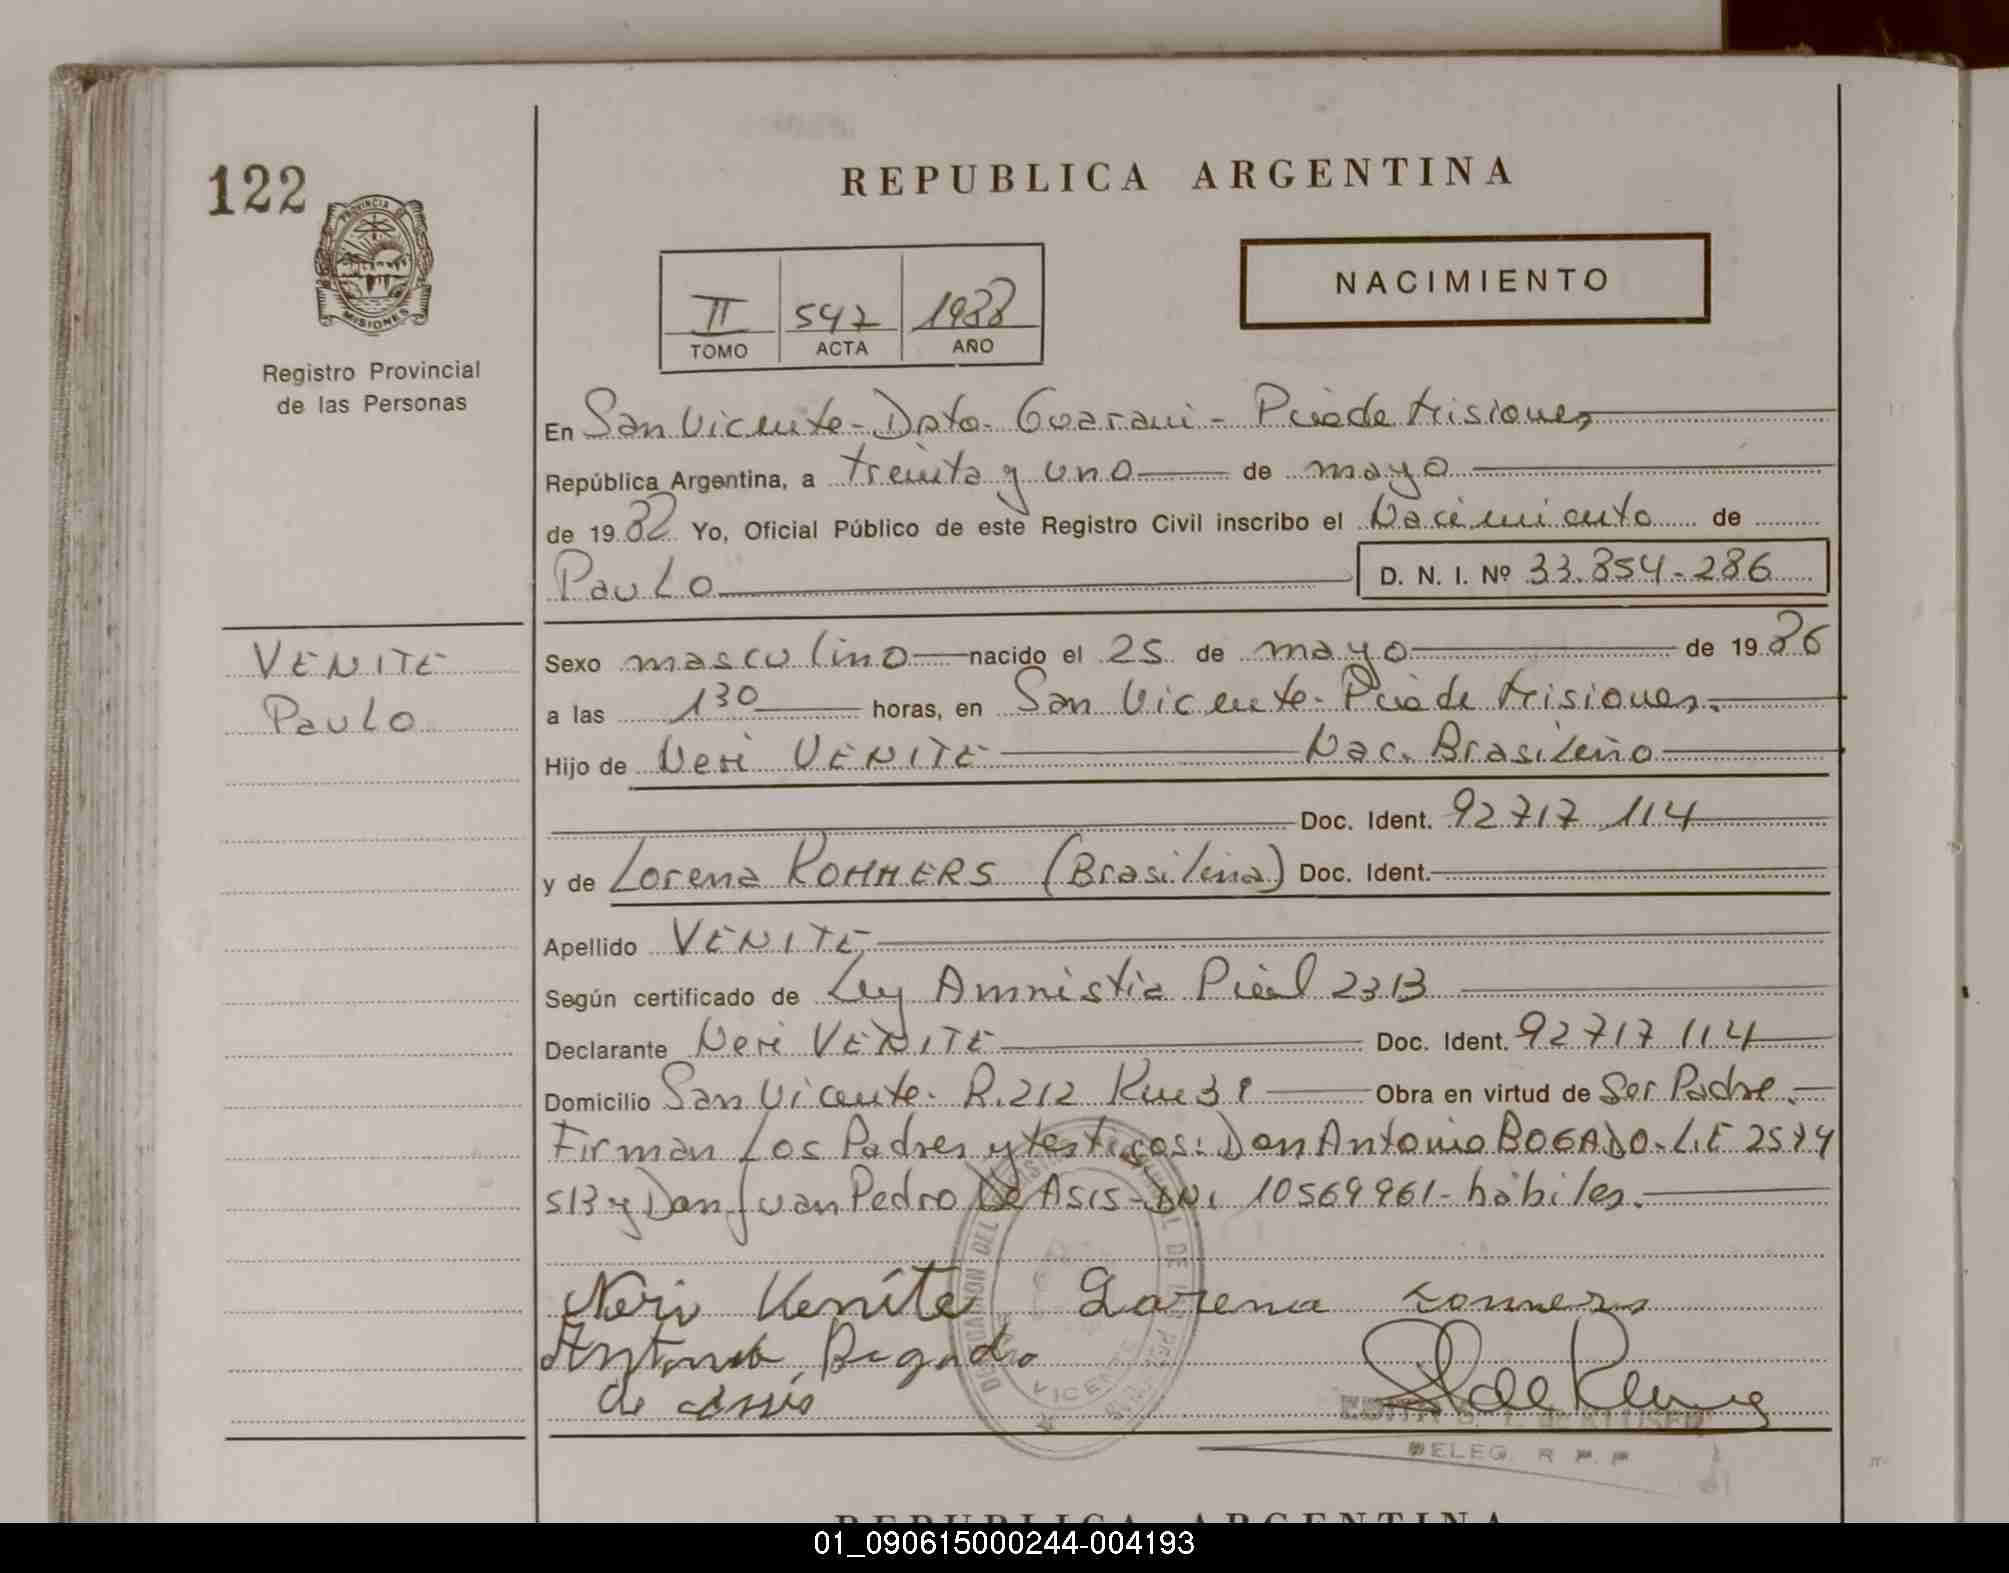 122
PROVINCIA DE
MISIONES
Registro Provincial
de las Personas
REPUBLICA ARGENTINA
II 542 1988
TOMO ACTA AÑO
NACIMIENTO
En San Vicente - Dpto. Guarani - Pcia de Misiones
República Argentina, a treinta y uno de mayo
de 1988 Yo, Oficial Público de este Registro Civil inscribo el Nacimiento de
Paulo D. N. I. Nº 33.854-286
VENITE
Paulo
Sexo masculino nacido el 25 de mayo de 1986
a las 130 horas, en San Vicente - Pcia de Misiones.
Hijo de Neri VENITE Nac. Brasileño
Doc. Ident. 92717 114
y de Lorena ROMMERS (Brasileña) Doc. Ident.
Apellido VENITE
Según certificado de Ley Amnistia Pcial 2313
Declarante Neri VENITE Doc. Ident. 92717 114
Domicilio San Vicente - R. 212 Obra en virtud de Ser Padre.
Firman Los Padres y testigos: Don Antonio BOGADO - L.E
513 y Don Juan Pedro De Asis - DNI 10569961 - hábiles.
Neri Venite Lorena
Antonio Bogado
de assis
DELEG. R. P. P
REPUBLICA ARGENTINA
01_090615000244-004193